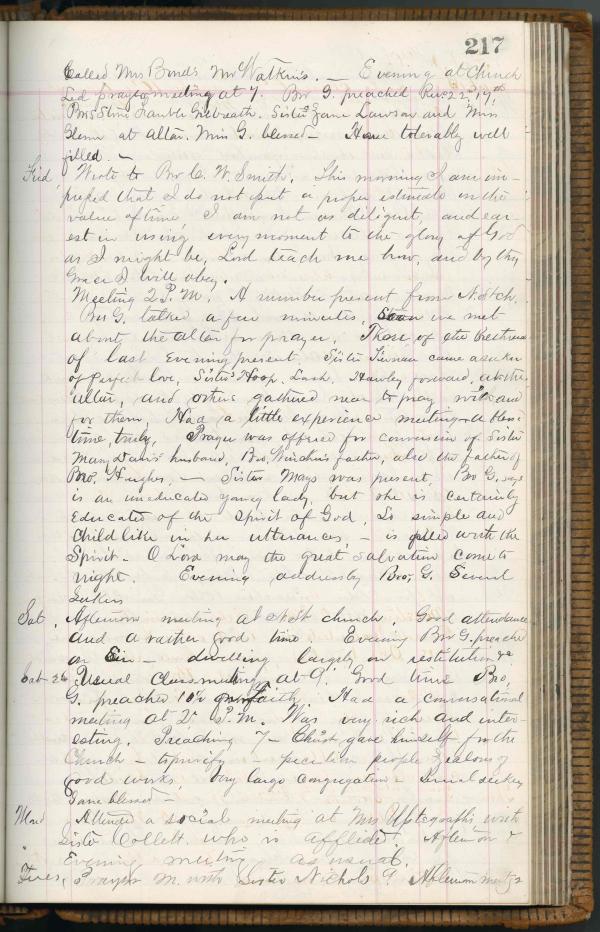 217
Called Mrs Bonds Mr Watkin's. — Evening at Church
Led prayer meeting at 7. Bro G. preached Rev 22, 17th
Bros Stine Gamble Sisters Jane Lawson and Mrs
Glenn at altar. Mrs G. blessed — House tolerably well
filled. —
Frid, Wrote to Bro C. W. Smith. This morning I am im-
pressed that I do not put a proper estimate on the
value of time, I am not as diligent, and ear-
est in using every moment to the glory of God
as I might be, Lord teach me how, and by thy
Grace I will obey.
Meeting 2 P. M. A number present from N. St ch.
Bro G. talked a few minutes, Soon we met
about the altar for prayer. Those of the brethren
of last Evening present. Sister Kiernan came a seeker
of perfect love, Sisters Hoop, Lash, Hawley forward, at the
altar, and others gathered near to pray with and
for them Had a little experience meeting a bless
time, truly, Prayer was offered for conversion of Sister
Mary Davis' husband, Bro, father, also the father of
Bro. Hughes, — Sister Mays was present, Bro G. says
is an uneducated young lady, but she is certainly
Educated of the Spirit of God, So simple and
Child like in her utterances, – is filled with the
Spirit – O Lord may the great salvation come to
night. Evening address by Bro, G. Several
Seekers
Sat, Afternoon meeting at N St church. Good attendance
and a rather good time. Evening Bro G. preached
on Sin — dwelling largely on restitution &c
Sab– 26 Usual Class meeting at 9. Good time Bro,
G. preached 10½ on faith. Had a conversational
meeting at 2 P. M. Was very rich and inter-
esting. Preaching 7 – Christ gave himself for the
Church – to purify – peculiar people zealous of
good works. Very large congregation – Several seekers
Some blessed —
Mond Attended a social meeting at Mrs Uptegraphs with
Sister Collett who is afflicted Afternoon &
Evening meeting as usual.
Tues, Prayer M. with Sister Nichols 9. Afternoon meetg 2